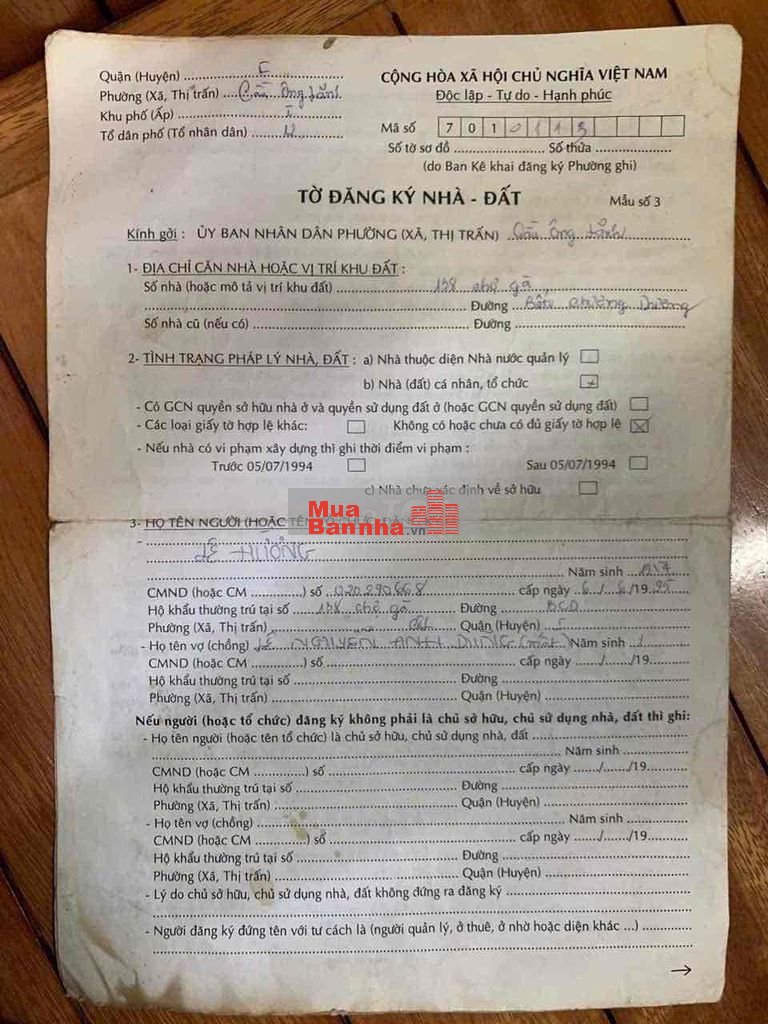 Quận (Huyện) ......I......
Phường (Xã, Thị trấn) ....Cầu Ông Lãnh
Khu phố (Ấp) ......I......
Tổ dân phố (Tổ nhân dân) ....12......
CỘNG HÒA XÃ HỘI CHỦ NGHĨA VIỆT NAM
Độc lập - Tự do - Hạnh phúc
Mã số 7 0 1 0 1 1 3
Số tờ sơ đồ ............ Số thửa ............
(do Ban Kê khai đăng ký Phường ghi)
TỜ ĐĂNG KÝ NHÀ - ĐẤT
Mẫu số 3
Kính gởi : ỦY BAN NHÂN DÂN PHƯỜNG (XÃ, THỊ TRẤN) Cầu Ông Lãnh
1- ĐỊA CHỈ CĂN NHÀ HOẶC VỊ TRÍ KHU ĐẤT :
Số nhà (hoặc mô tả vị trí khu đất) ............ 138 chợ gà
............ Đường .... Bến Chương Dương
Số nhà cũ (nếu có) ............ Đường ............
2- TÌNH TRẠNG PHÁP LÝ NHÀ, ĐẤT : a) Nhà thuộc diện Nhà nước quản lý
b) Nhà (đất) cá nhân, tổ chức
- Có GCN quyền sở hữu nhà ở và quyền sử dụng đất ở (hoặc GCN quyền sử dụng đất)
- Các loại giấy tờ hợp lệ khác: Không có hoặc chưa có đủ giấy tờ hợp lệ
- Nếu nhà có vi phạm xây dựng thì ghi thời điểm vi phạm :
Trước 05/07/1994 Sau 05/07/1994
c) Nhà chưa xác định về sở hữu
Mua
Bannha.vn
3- HỌ TÊN NGƯỜI (HOẶC TÊN
LÊ HƯỞNG
Năm sinh ....
CMND (hoặc CM ............) số ..020290668.. cấp ngày ..6../..6../19..95
Hộ khẩu thường trú tại số ....138 chợ gà.... Đường ....BCD....
Phường (Xã, Thị trấn) ............ Quận (Huyện) ............
- Họ tên vợ (chồng) LÊ NGUYEN ANH DUNG (mất) Năm sinh ..../....
CMND (hoặc CM ............) số ............ cấp ngày ....../....../19......
Hộ khẩu thường trú tại số ............ Đường ............
Phường (Xã, Thị trấn) ............ Quận (Huyện) ............
Nếu người (hoặc tổ chức) đăng ký không phải là chủ sở hữu, chủ sử dụng nhà, đất thì ghi:
- Họ tên người (hoặc tên tổ chức) là chủ sở hữu, chủ sử dụng nhà, đất ............
............ Năm sinh ............
CMND (hoặc CM ............) số ............ cấp ngày ....../....../19......
Hộ khẩu thường trú tại số ............ Đường ............
Phường (Xã, Thị trấn) ............ Quận (Huyện) ............
- Họ tên vợ (chồng) ............ Năm sinh ............
CMND (hoặc CM ............) số ............ cấp ngày ....../....../19......
Hộ khẩu thường trú tại số ............ Đường ............
Phường (Xã, Thị trấn) ............ Quận (Huyện) ............
- Lý do chủ sở hữu, chủ sử dụng nhà, đất không đứng ra đăng ký ............
- Người đăng ký đứng tên với tư cách là (người quản lý, ở thuê, ở nhờ hoặc diện khác ...) ............